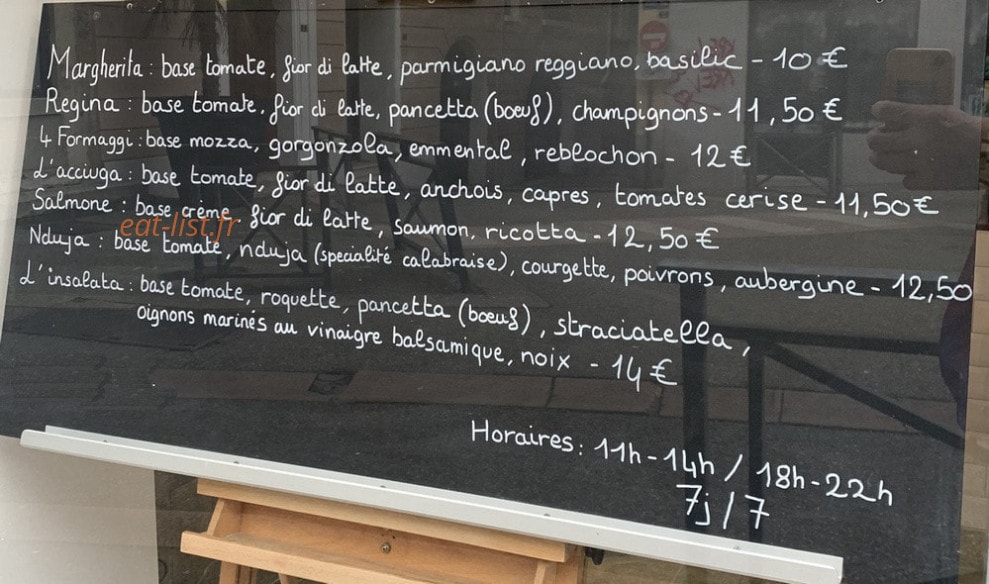 Margherita : base tomate, fior di latte, parmigiano reggiano, basilic - 10 €
Regina : base tomate, fior di latte, pancetta (boeuf), champignons - 11,50 €
4 Formaggi : base mozza, gorgonzola, emmental, reblochon - 12 €
L'acciuga : base tomate, fior di latte, anchois, capres, tomates cerise - 11,50 €
Salmone : base crème, fior di latte, saumon, ricotta - 12,50 €
eat-list.fr
Nduja : base tomate, nduja (specialité calabraise), courgette, poivrons, aubergine - 12,50
L'insalata : base tomate, roquette, pancetta (boeuf), straciatella,
oignons marinés au vinaigre balsamique, noix - 14 €
Horaires : 11h - 14h / 18h - 22h
7j / 7